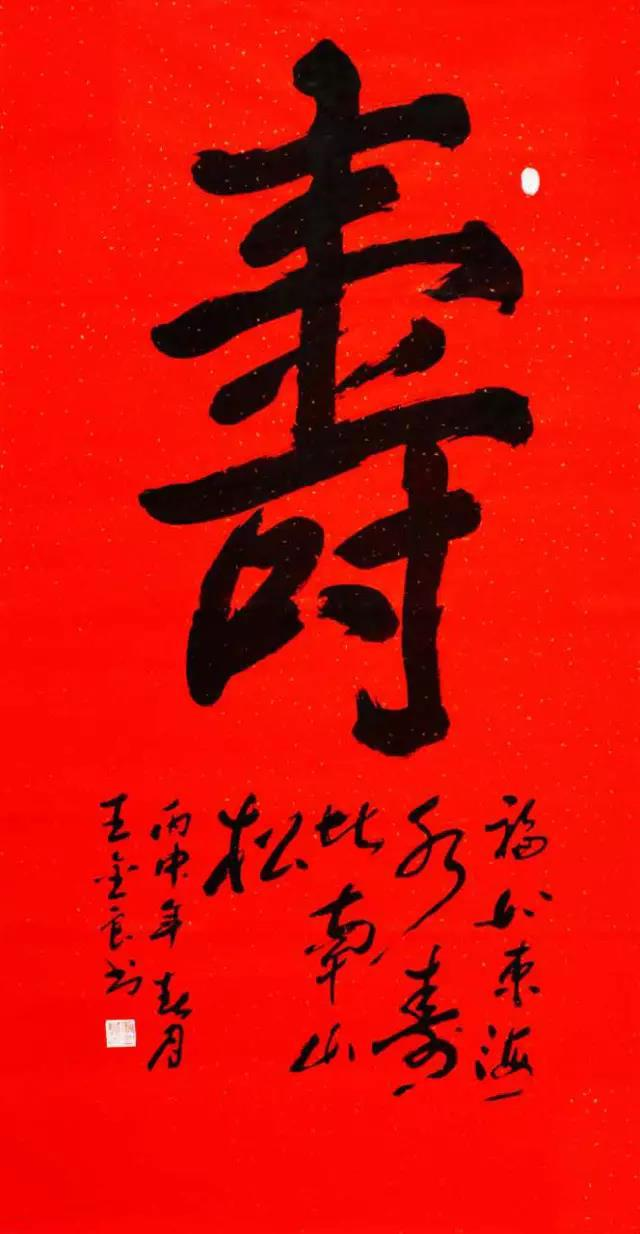 壽
福如东海
水寿
比南山
松
丙申年春月
王金良书